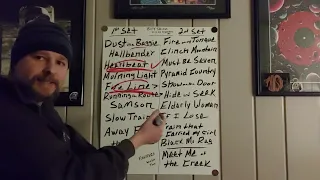 1st Set
Dust in a Baggie
Hellbender
Heartbeat
Morning Light
Fire Line
Running on Route
Samson
Slow Train
Away F
2nd Set
Fire on Tongue
Clinch Mountain
Must Be Seven
Pyramid Country
Show Me the Door
Hide and Seek
Elderly Woman
If I Lose
Train that
Carried my Girl
Black Mt Rag
Meet Me at
the Creek